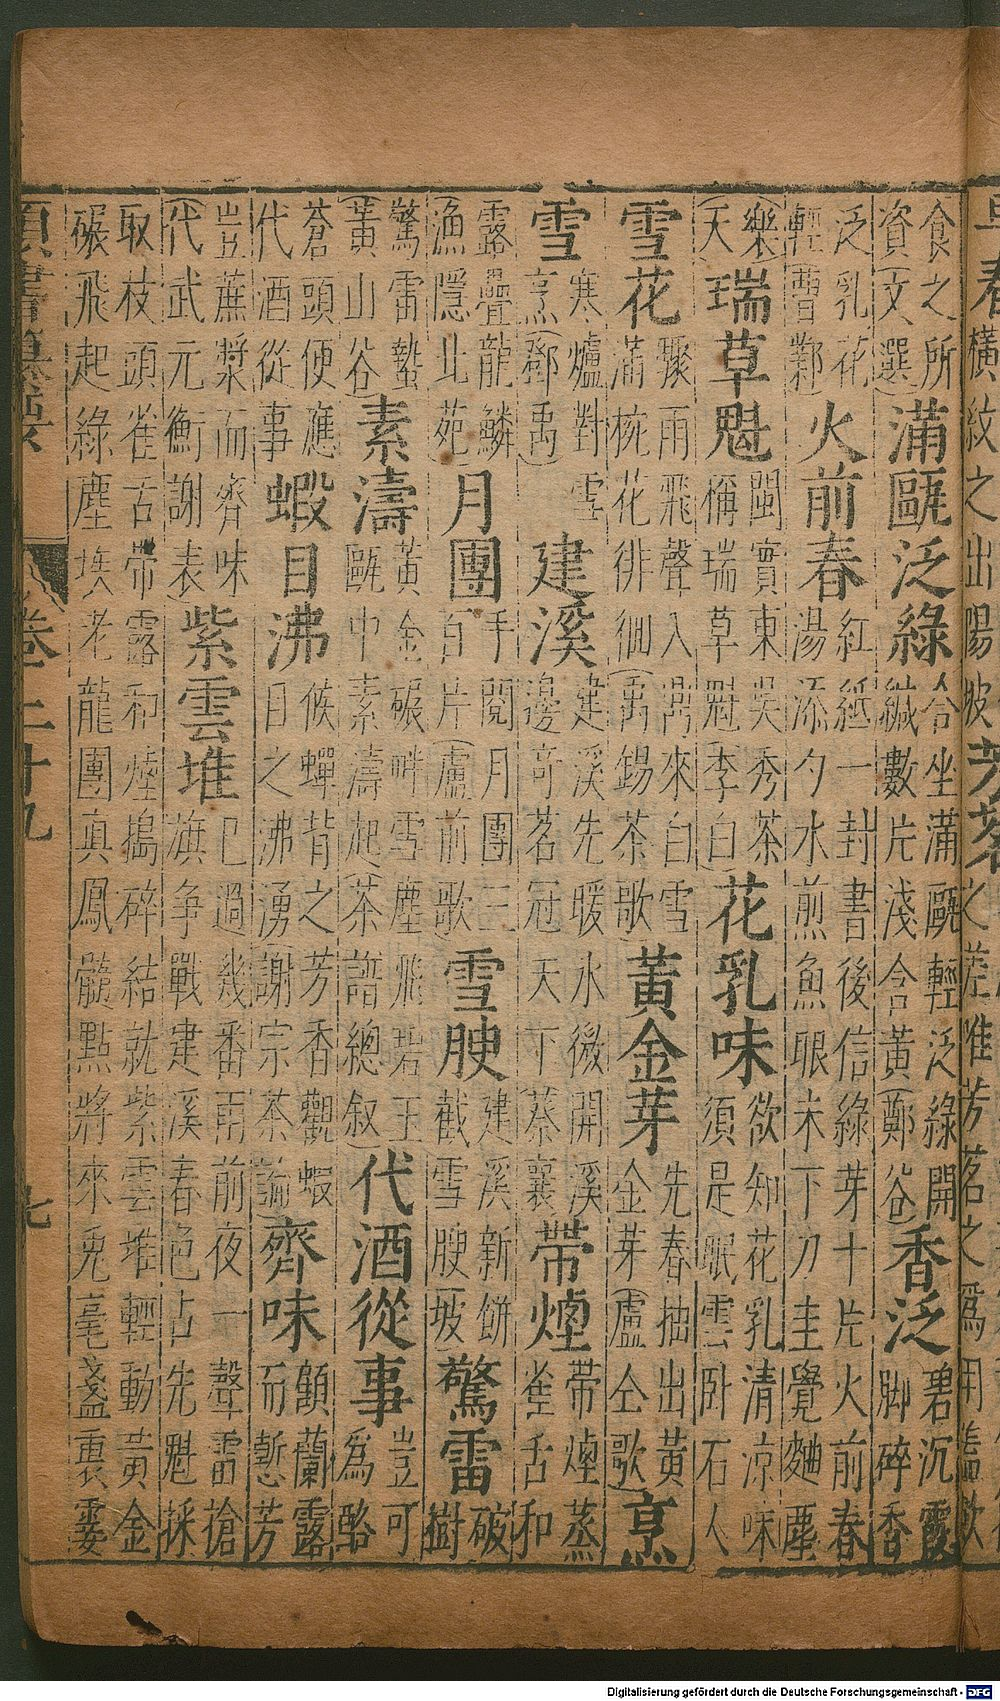 春橫紋之出陽坡芳茗之産唯芳茗之為用蓋飲
食之所資(文選)滿甌泛綠合坐滿甌輕泛綠開緘數片淺含黃(鄭谷)香泛碧沉霞脚碎香
泛乳花輕(曹鄴)火前春紅紙一封書後信綠芽十片火前春湯添勺水煎魚眼末下刀圭覺麯塵
(樂天)瑞草魁閩實東吳秀茶稱瑞草魁(李白)花乳味欲知花乳清涼味須是眠雲卧石人
雪花驟雨飛聲入鼎來白雪滿椀花徘徊(禹錫茶歌)黃金芽先春抽出黃金芽(盧仝歌)烹
雪寒爐對雪烹(鄧禹)建溪建溪先暖水微開溪邊奇茗冠天下(蔡襄)帶煙帶煙蒸雀舌和
露疊龍鱗(漁隱北苑)月團手閱月團三百片(盧前歌)雪腴建溪新餅截雪腴(坡)驚雷破樹
驚雷蟄(黃山谷)素濤黃金碾畔雪塵飛碧玉甌中素濤起(茶譜總叙)代酒從事豈可為酪
蒼頭便應代酒從事蝦目沸候蟬背之芳香觀蝦目之沸湧(謝宗茶論)齊味顧蘭露而慙芳
豈蔗漿而齊味(代武元衡謝表)紫雲堆已過幾番雨前夜一聲雷搶旗爭戰建溪春色占先魁採
取枝頭雀舌帶露和煙搗碎結就紫雲堆輕動黃金碾飛起綠塵埃老龍團真鳳髓點將來兎毫盞裏霎
卷二十九 七
Digitalisierung gefördert durch die Deutsche Forschungsgemeinschaft - DFG